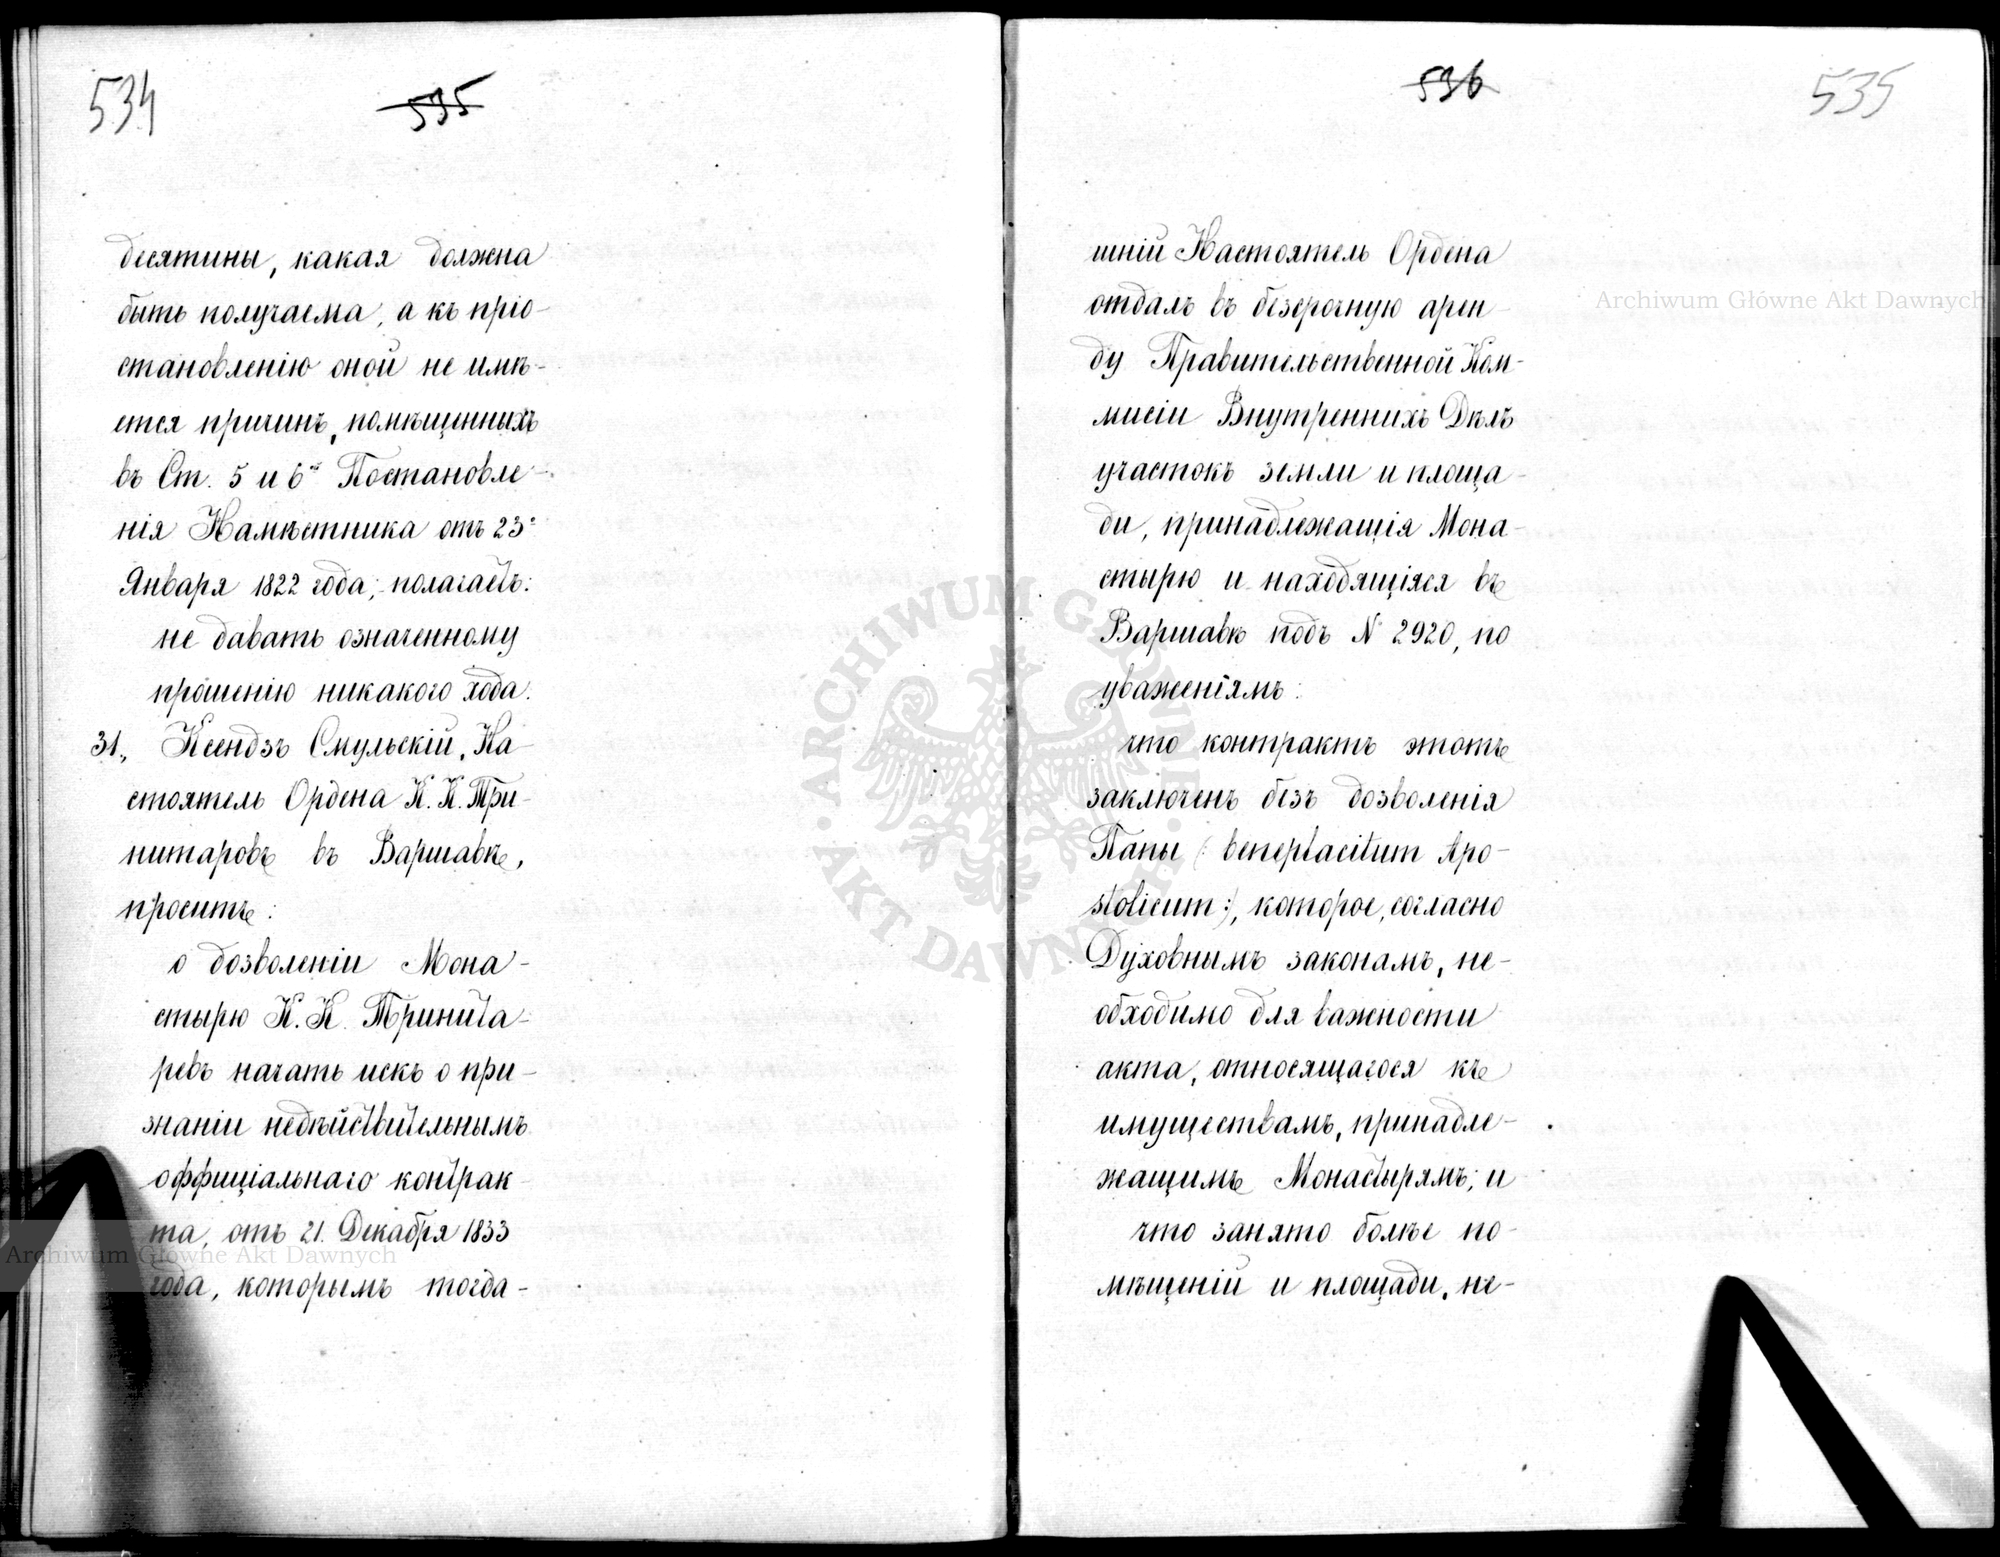 534
535
десятины, какая должна
быть получаема, а къ прiо-
становленiю оной не имѣ-
ется причинъ, помѣщенныхъ
въ Ст. 5 и 6й Постановле-
нiя Намѣстника отъ 23го
Января 1822 года; полагаетъ:
не давать означенному
прошенiю никакого хода.
31., Ксендзъ Смульскiй, На-
стоятель Ордена К. К. Три-
нитаровъ въ Варшавѣ,
проситъ:
о дозволенiи Мона-
стырю К. К. Тринита-
ревъ начать искъ о при-
знанiи недѣйствительнымъ
оффицiальнаго контрак-
та, отъ 21. Декабря 1833
года, которымъ тогда-
536
535
шнiй Настоятель Ордена
отдалъ въ безсрочную арен-
ду Правительственной Ком-
мисiи Внутреннихъ Дѣлъ
участокъ земли и площа-
ди, принадлежащiя Мона-
стырю и находящiяся въ
Варшавѣ подъ N 2920, по
уваженiямъ:
что контрактъ этотъ
заключенъ безъ дозволенiя
Папы (: beneplacitum Apo-
stolicum :), которое, согласно
Духовнымъ законамъ, не-
обходимо для важности
акта, относящагося къ
имуществамъ, принадле-
жащимъ Монастырямъ; и
что занято болѣе по-
мѣщенiй и площади, не-
Archiwum Główne Akt Dawnych
Archiwum Główne Akt Dawnych
ARCHIWUM GŁÓWNE AKT DAWNYCH